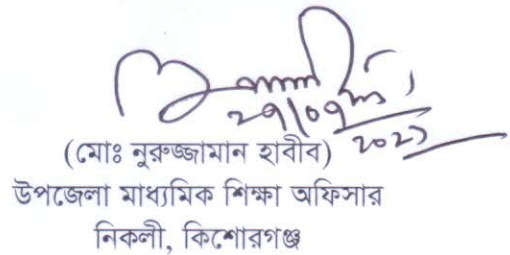 (মোঃ নুরুজ্জামান হাবীব)
উপজেলা মাধ্যমিক শিক্ষা অফিসার
নিকলী, কিশোরগঞ্জ